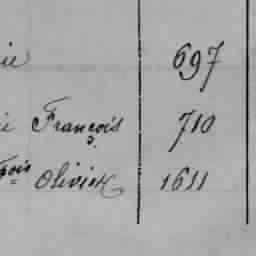 ie 697
ie François 710
çois Olivier 1611